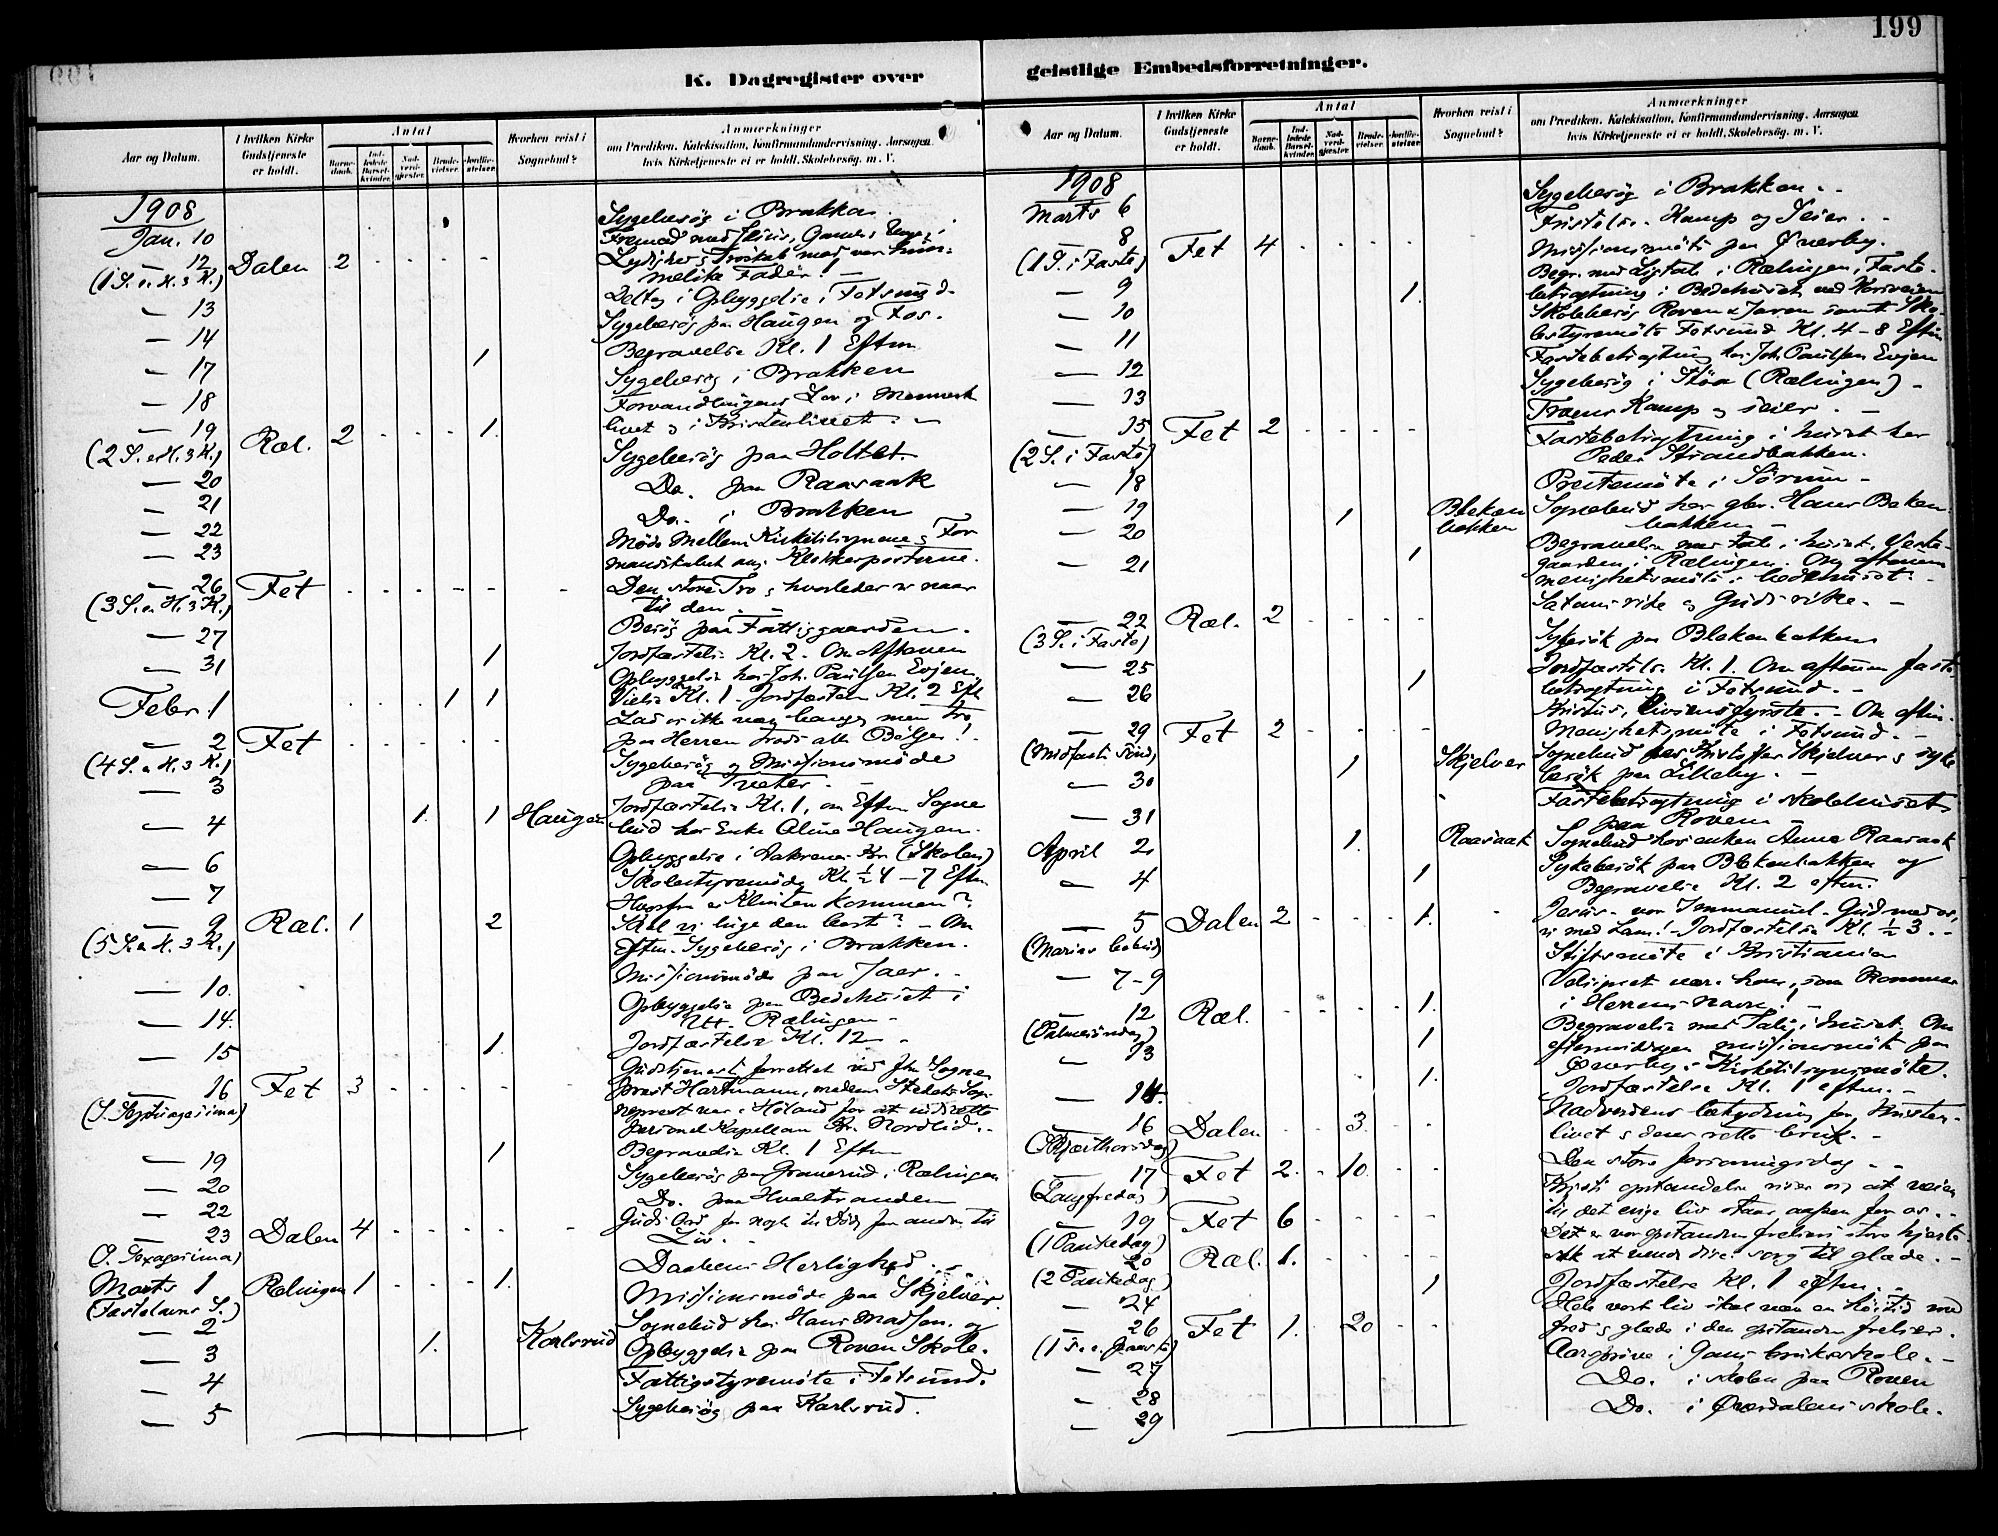 199
K. Dagregister over geistlige Embedsforretninger.
Aar og Datum.
I hvilken Kirke Gudstjeneste er holdt.
Antal
Barnedaab.
Indledede Barselkvinder.
Nadverdgjæster.
Brudevielser.
Jordfæstelser.
Hvorhen reist i Sognebud?
Anmærkninger
om Prædiken. Katekisation, Konfirmandundervisning. Aarsagen
hvis Kirketjeneste ei er holdt. Skolebesøg. m. V.
1908
Jan. 10 Sygebesøg i Brakka.
— 12 Dalen 2 Fremad med Jesus,
(1 S. e. H. 3 K.) Lydighed & Troskab mod vor himmelske Fader! —
— 13 Deltog i Opbyggelse i Fetsund.
— 14 Sygebesøg paa Haugen og Fos.
— 17 1 Begravelse Kl. 1 Eftm
— 18 Sygebesøg i Brakken
— 19 Ræl. 2 1. Forvandlingens Lov i Mennesk
(2 S. e. H. 3 K.) livet & i Kristenlivet. —
— 20 Sygebesøg paa Holtet
— 21 Do. paa Raasaak
— 22 Do. i Brakken
— 23 Møde mellem Kirketilsynene & For
mandskabet ang. Klokkerposterne.
— 26 Fet Den store Tro & hvorledes vi naar
(3 S. e. H. 3 K.) til den. —
— 27 Besøg paa Fattiggaarden.
— 31 1 Jordfæstelse Kl. 2. Om Aftenen
Opbyggelse hos Joh. Paulsen Evjen.
Febr. 1 1 1 Vielse Kl. 1 - Jordfæstelse Kl. 2 Eft
— 2 Fet Lad os ikke være bange, men tro,
(4 S. e. H. 3 K.) paa Herren trods alle Bølger! -
— 3 Sygebesøg og Missionsmøde
paa Tveter. -
— 4 1. 1 Haugen Jordfæstelse Kl. 1, om Eftm Sogne
bud hos Enke Oline Haugen.
— 6 Opbyggelse i Aakrene Kr. (Skolen)
— 7 Skolestyremøde Kl. ½ 4 — 7 Eftm
— 9 Ræl. 1 2 Hvorfor er Kristen kommen?
(5 S. e. H. 3 K.) Skal vi luge den bort? - Om
Eftm. Sygebesøg i Brakken.
— 10. Missionsmøde paa Jaer. -
— 14. Opbyggelse paa Bedehuset i
Ytt. Rælingen -
— 15 1. Jordfæstelse Kl. 12 -
— 16 Fet 3 Gudstjenest forrettet ved fhv Sogne
(S. Septuagesima) præst Hartmann, medens Stedets Sog-
nepræst var i Høland for at
personel Kapellan Hr. Nordlid. -
— 19 1 Begravelse Kl. 1 Eftm
— 20 Sygebesøg paa Granerud i Rælingen
— 22 Do. paa Hvalstranden
— 23 Dalen 4 Guds Ord for nogle til Død, for andre til
(S. Sexagesima) Liv. -
Marts 1 Rælingen 1 1. Daabens Herlighed. -
(Fastelavns S.)
— 2 Missionsmøde paa Skjelver.
— 3 1. Karlsrud Sognebud hos Hans Madsen, og
Opbyggelse paa Roven Skole.
— 4 Fattigstyremøte i Fetsund.
— 5 Sygebesøg paa Karlsrud.
Aar og Datum.
I hvilken Kirke Gudstjeneste er holdt.
Antal
Barnedaab.
Indledede Barselkvinder.
Nadverdgjæster.
Brudevielser.
Jordfæstelser.
Hvorhen reist i Sognebud?
Anmærkninger
om Prædiken. Katekisation, Konfirmandundervisning. Aarsagen
hvis Kirketjeneste ei er holdt. Skolebesøg. m. V.
1908
Marts 6 Sygebesøg i Brakken. -
— 8 Fet 4 Fristelse. Kamp og Seier. -
(1 S. i Faste) Missionsmøte paa Øverby.
— 9 1. Begr. med Ligtale i Rælingen, Faste-
betragtning i Bedehuset ved Korsveien
— 10 Skolebesøg Roven & Jaren samt Sko-
lestyremøte Fetsund Kl. 4 - 8 Eftm
— 11 Fastebetragtning hos Joh. Paulsen Evjen
— 12 Sygebesøg i Støa (Rælingen) -
— 13
— 15 Fet 2 Troens Kamp & seier. —
(2 S. i Faste)
— 18 Fastebetragtning i huset hos
Peder Strandbakken.
— 19 Prestemøte i Sørum -
— 20 1 Bleken bakken Sognebud hos gbr. Hans Beken
bakken -
— 21 1 Begravelse med tale i huset,
gaarden i Rælingen. Om aftenen
menighetsmøte i bedehuset. -
— 22 Ræl. 2 Satans rike & Guds rike. -
(3 S. i Faste)
— 25 Sykebesøk paa Blekenbakken
— 26 1 Jordfæstelse Kl. 1. Om aftenen faste
betragtning i Fetsund. -
— 29 Fet 2 Kristus, livsens fyrste. - Om eftm.
(Midfaste Sønd.) Menighetsmøte i Fetsund. -
— 30 1 Skjelver Sognebud hos Kristoffer Skjelver & syke
besøk paa Lilleby. -
— 31 Fastebetragtning i skolehuset
paa Roven -
April 2 1. Raasaak Sognebud hos enken Anne Raasaak
— 4 1 Sykebesøk paa Blekenbakken og
Begravelse Kl. 2 eftm.
— 5 Dalen 2 1. Jesus - vor Immanuel - Gud med os,
(Mariæ bebud) vi med ham! - Jordfæstelse Kl. ½ 3. -
— 7-9 Stiftsmøte i Kristiania
— 12 Ræl. 1. Velsignet være han, som kommer
(Palmesøndag) i Herrens navn! -
— 13 1 Begravelse med Tale i huset. Om
eftermiddagen missionsmøte paa
Øverby. Kirketilsynsmøte.
— 14. 1. Jordfæstelse Kl. 1 eftm. -
— 16 Dalen 3. Nadverdens betydning for Kristen-
(Skjærthorsdag) livet & denes rette bruk. -
— 17 Fet 2. 10. Den store forsoningsdag - -
(Langfredag)
— 19 Fet 6 Kristi opstandelse viser os, at veien
(1 Paaskedag) til det evige liv staar aapen for os. -
— 20 Ræl. 1. Det er vor opstandne frelsers store hjerte
(2 Paaskedag) sak at vende dine sorg til glæde. -
— 24 1 Jordfæstelse Kl. 1 eftm. -
— 26 Fet 1. 20 Hele vort liv skal være en høitid med
(1 S. e. paaske) fred & glæde i den opstandne frelser.
— 27 Aarsprøve i Gans brukskole. -
— 28 Do. i skolen paa Roven
— 29 Do. i Øverdalens skole.